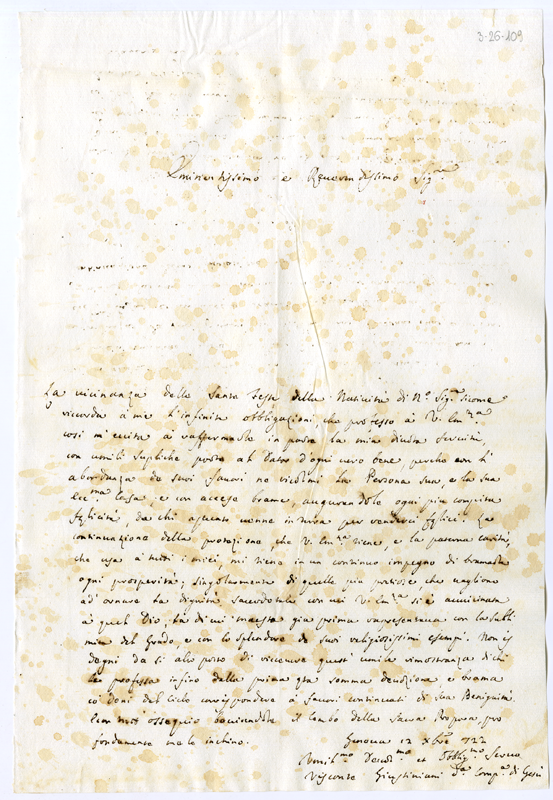 3-26-109
Eminentissimo e Reverendissimo Sig.re
La vicinanza delle Sante Feste della Natività di N.o Sig.re siccome
ricorda à me l'infinite obbligazioni, che professo à V. Em.za
così m'eccita à raffermarle in parte la mia divota servitù,
con umili suppliche porte al Dator d'ogni vero bene, perche con l'
abondanza de suoi favori ne ricolmi la Persona sua, e la sua
Ecc.ma Casa, e con accese brame, augurandole ogni più compita
felicità, da chi appunto venne in terra per renderci felici. La
continuazione della protezione, che V. Em.za tiene, e la paterna carità,
che usa à tutti i miei, mi tiene in un continuo impegno di bramarle
ogni prosperità; singolarmente di quelle più preziose che vagliono
ad'ornare la dignità sacerdotale con cui V. Em.za si è avvicinata
à quel Dio, la di cui maestà già prima rappresentava con la subli-
mità del Grado, e con lo splendore de suoi religiosissimi esempi. Non is
degni da sì alto posto di ricevere quest'umile rimostranza di chi
le professa infino dalla prima età somma devozione, e brama
co' doni del Cielo corrispondere à favori continuati di sua Benignità.
Con ossequio bacciandole il lembo della Sacra Porpora, pro
fondamente me le inchino.
Genova 12 Xbre 1722
Umil.mo Devot.mo et Obblig.mo Servo
Visconte Giustiniani d.a Comp.a di Gesù